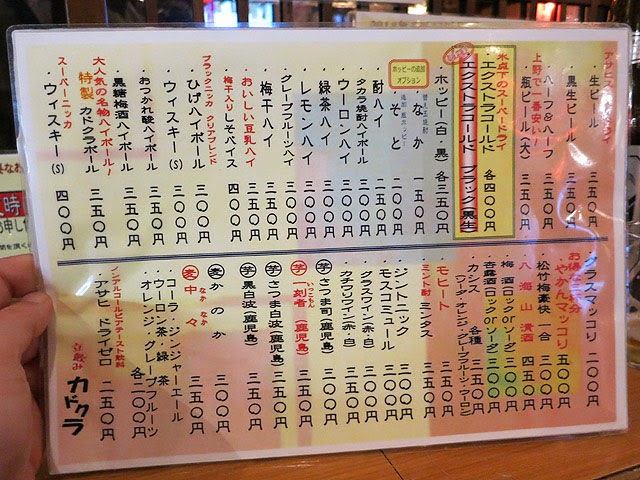 アサヒスーパードライ
・生ビール 三五〇円
・黒生ビール 三五〇円
・ハーフ&ハーフ 三五〇円
上野で一番安い!
・瓶ビール(大) 四五〇円
氷点下のスーパードライ
・エクストラコールド 各四〇〇円
・エクストラコールド ブラック(黒生)
・ホッピー(白・黒) 各三五〇円
ホッピーの追加オプション
・なか 一五〇円
・そと 二〇〇円
・酎ハイ 二五〇円
・タカラ焼酎ハイボール 三〇〇円
・ウーロンハイ 三〇〇円
・緑茶ハイ 三〇〇円
・レモンハイ 三〇〇円
・グレープフルーツハイ 三〇〇円
・梅干ハイ 三五〇円
・おいしい豆乳ハイ 三五〇円
・梅干入りしそバイス 四〇〇円
ブラックニッカ クリアブレンド
・ひげハイボール 三〇〇円
・ウィスキー(S) 三〇〇円
・おつかれ酸ハイボール 三五〇円
・黒糖梅酒ハイボール 三五〇円
大人気の名物ハイボール!
・特製カドクラボール 三五〇円
スーパーニッカ
・ウィスキー(S) 四〇〇円
・グラスマッコリ 二〇〇円
お得な三杯分
・やかんマッコリ 五〇〇円
・松竹梅豪快 一合 三〇〇円
・八海山 清酒 四五〇円
・梅酒(ロックorソーダ) 三〇〇円
・杏露酒(ロックorソーダ) 三〇〇円
・カシス 各種 三五〇円
(ソーダ・オレンジ・グレープフルーツ・ウーロン)
・モヒート 三五〇円
・ミント酎 ミンタス 三五〇円
・ジントニック 三〇〇円
・モスコミュール 三〇〇円
・グラスワイン(赤・白) 三〇〇円
・カチワリワイン(赤・白) 三五〇円
・芋 さつま司(鹿児島) 三〇〇円
・芋 一刻者(鹿児島) 三五〇円
いっこもん
・芋 さつま白波(鹿児島) 三五〇円
・芋 黒白波(鹿児島) 三五〇円
・麦 かのか 三〇〇円
・麦 中々 三五〇円
なかなか
・コーラ・ジンジャーエール
・ウーロン茶・緑茶
・オレンジ・グレープフルーツ
各二〇〇円
ノンアルコールビアテースト飲料
・アサヒ ドライゼロ 二五〇円
立飲み カドクラ